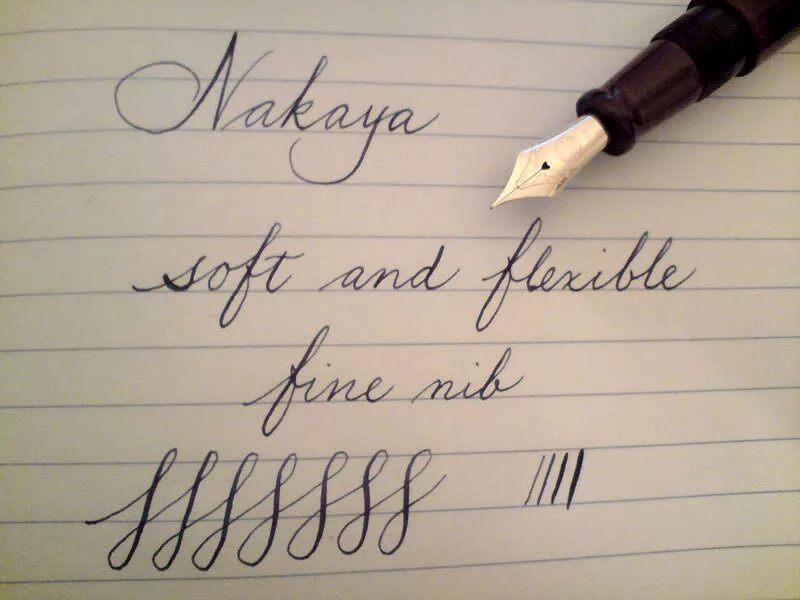 Nakaya
soft and flexible
fine nib